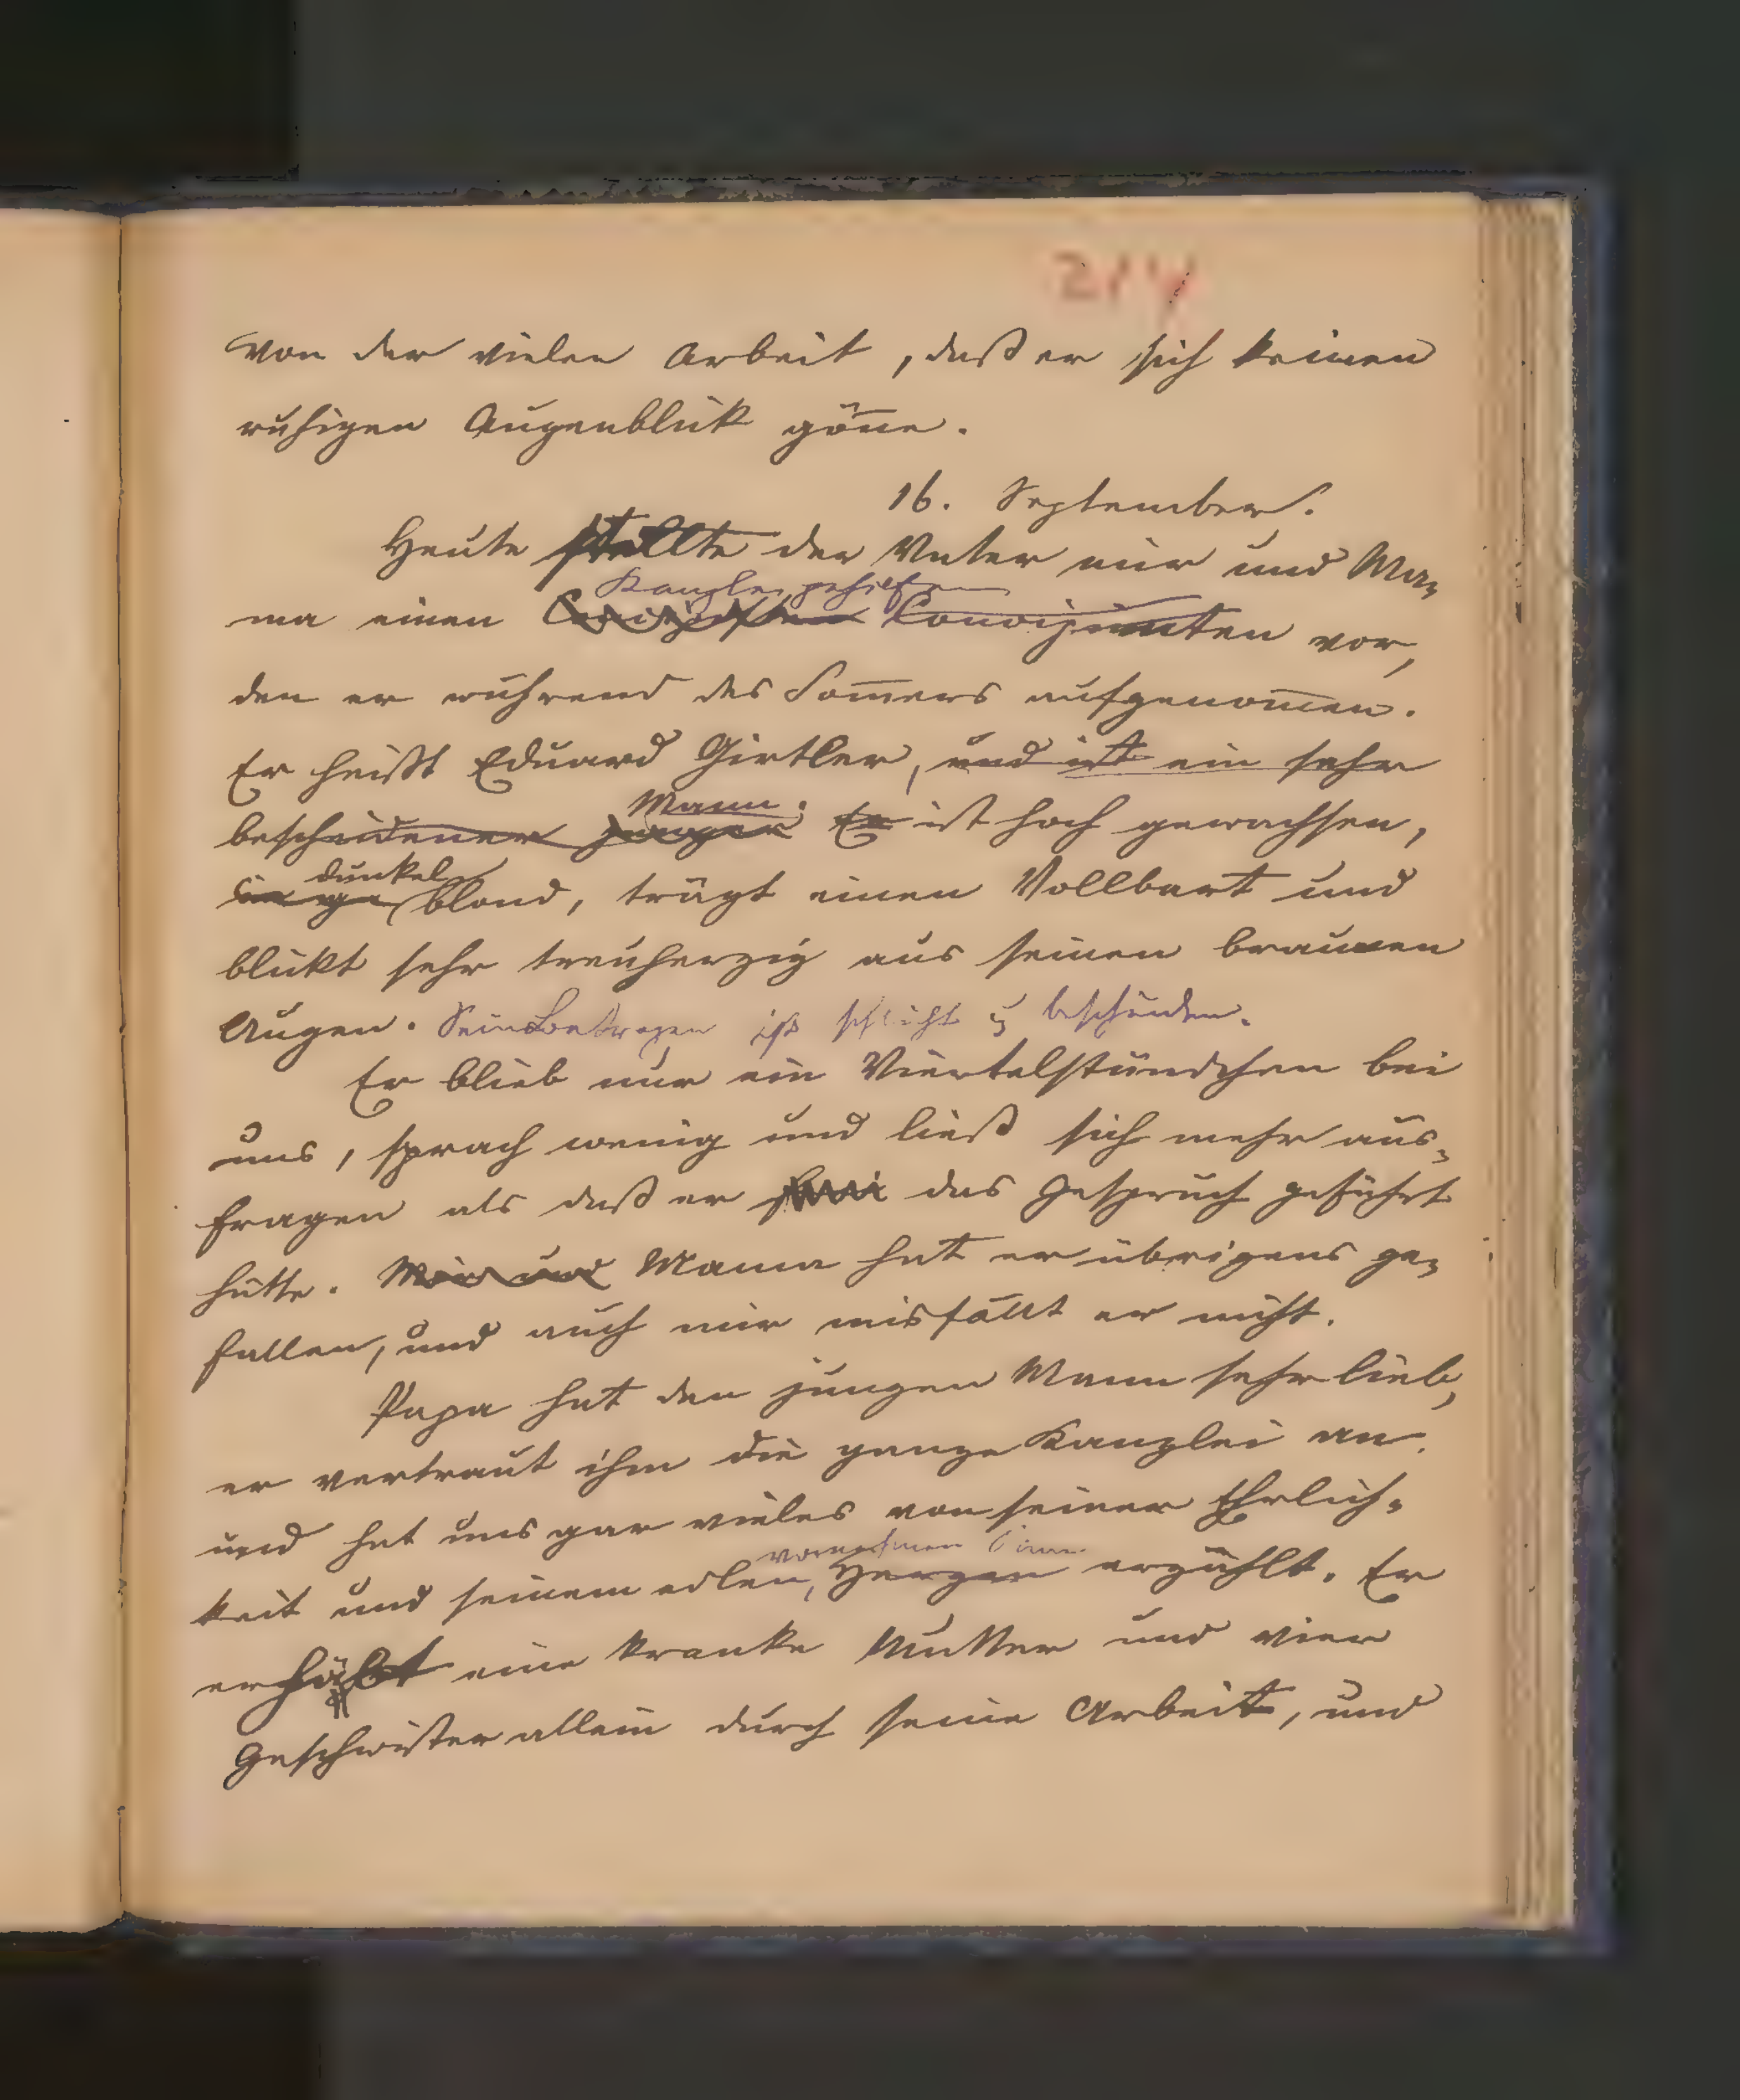 214
von der vielen Arbeit, daß er sich keinen
ruhigen Augenblik göñe.
16. September.
Heute stellte der Vater mir und Ma-
Kanzleigehilfen
ma einen Concipienten vor,
den er während des Som̄ers aufgenom̄en.
Er heißt Eduard Girtler, und ist ein sehr
Mann.
bescheidener junger Er ist hoch gewachsen,
dunkel
blond, trägt einen Vollbart und
blikt sehr treuherzig aus seinen braunen
Augen. Sein Betragen ist schlicht u bescheiden.
Er blieb nur ein Viertelstündchen bei
uns, sprach wenig und ließ sich mehr aus-
fragen als daß er das Gespräch geführt
hätte. Mir und Mama hat er übrigens ge-
fallen, und auch mir misfällt er nicht.
Papa hat den jungen Mann sehr lieb,
er vertraut ihm die ganze Kanzlei an
und hat uns gar vieles von seiner Ehrlich-
vornehmen Sinn
keit und seinem edlen, Herzen erzählt. Er
erhält eine kranke Mutter und vier
Geschwister allein durch seine Arbeit, und